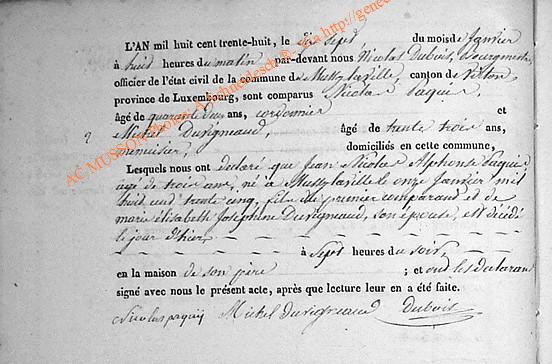 L'AN mil huit cent trente-huit, le dix sept du mois de Janvier
à huit heures du matin par-devant nous Nicolas Dubois, Bourgmestre
officier de l'état civil de la commune de Mussy laville, canton de Virton,
province de Luxembourg, sont comparus Nicolas Paquet
âgé de quarante deux ans, cordonnier et
Michel Duvigneaud, âgé de trente trois ans,
menuisier, domiciliés en cette commune,
Lesquels nous ont déclaré que Jean Nicolas Alphonse Paquet
âgé de trois ans, né à Mussy laville le onze Janvier mil
huit cent trente cinq, fils du premier comparand et de
marie élisabeth Joséphine Duvigneaud, son épouse, est décédé
le jour d'hier,
à sept heures du soir,
en la maison de son père ; et ont les déclarans
signé avec nous le présent acte, après que lecture leur en a été faite.
Nicolas paquij Michel duvigneaud Dubois